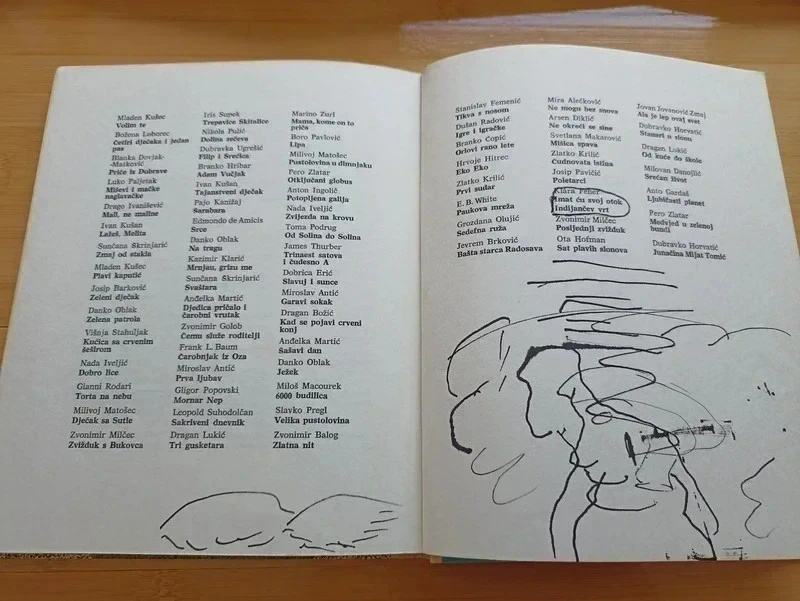 Mladen Kušec
Volim te
Božena Loborec
Četiri dječaka i jedan
pas
Blanka Dovjak-
-Matković
Priče iz Dubrave
Luko Paljetak
Miševi i mačke
naglavačke
Drago Ivanišević
Mali, ne maline
Ivan Kušan
Lažeš, Melita
Sunčana Škrinjarić
Zmaj od stakla
Mladen Kušec
Plavi kaputić
Josip Barković
Zeleni dječak
Danko Oblak
Zelena patrola
Višnja Stahuljak
Kućica sa crvenim
šeširom
Nada Iveljić
Dobro lice
Gianni Rodari
Torta na nebu
Milivoj Matošec
Dječak sa Sutle
Zvonimir Milčec
Zvižduk s Bukovca
Iris Supek
Trepavice Skitalice
Nikola Pulić
Dolina zečeva
Dubravka Ugrešić
Filip i Srećica
Branko Hribar
Adam Vučjak
Ivan Kušan
Tajanstveni dječak
Pajo Kanižaj
Šarabara
Edmondo de Amicis
Srce
Danko Oblak
Na tragu
Kazimir Klarić
Mrnjau, grizu me
Sunčana Škrinjarić
Svaštara
Anđelka Martić
Djedica pričalo i
čarobni vrutak
Zvonimir Golob
Čemu služe roditelji
Frank L. Baum
Čarobnjak iz Oza
Miroslav Antić
Prva ljubav
Gligor Popovski
Mornar Nep
Leopold Suhodolčan
Sakriveni dnevnik
Dragan Lukić
Tri gusketara
Marino Zurl
Mama, kome on to
priča
Boro Pavlović
Lipa
Milivoj Matošec
Pustolovina u dimnjaku
Pero Zlatar
Otključani globus
Anton Ingolič
Potopljena galija
Nada Iveljić
Zvijezda na krovu
Toma Podrug
Od Solina do Solina
James Thurber
Trinaest satova
i čudesno A
Dobrica Erić
Slavuj i sunce
Miroslav Antić
Garavi sokak
Dragan Božić
Kad se pojavi crveni
konj
Anđelka Martić
Šašavi dan
Danko Oblak
Ježek
Miloš Macourek
6000 budilica
Slavko Pregl
Velika pustolovina
Zvonimir Balog
Zlatna nit
Stanislav Femenić
Tikva s nosom
Dušan Radović
Igre i igračke
Branko Ćopić
Orlovi rano lete
Hrvoje Hitrec
Eko Eko
Zlatko Krilić
Prvi sudar
E. B. White
Paukova mreža
Grozdana Olujić
Sedefna ruža
Jevrem Brković
Bašta starca Radosava
Mira Alečković
Ne mogu bez snova
Arsen Diklić
Ne okreći se sine
Svetlana Makarović
Mišica spava
Zlatko Krilić
Čudnovata istina
Josip Pavičić
Poletarci
Klara Feher
Imat ću svoj otok
Indijančev vrt
Zvonimir Milčec
Posljednji zvižduk
Ota Hofman
Sat plavih slonova
Jovan Jovanović Zmaj
Ala je lep ovaj svet
Dubravko Horvatić
Stanari u slonu
Dragan Lukić
Od kuće do škole
Milovan Danojlić
Srećan život
Anto Gardaš
Ljubičasti planet
Pero Zlatar
Medvjed u zelenoj
bundi
Dubravko Horvatić
Junačina Mijat Tomić